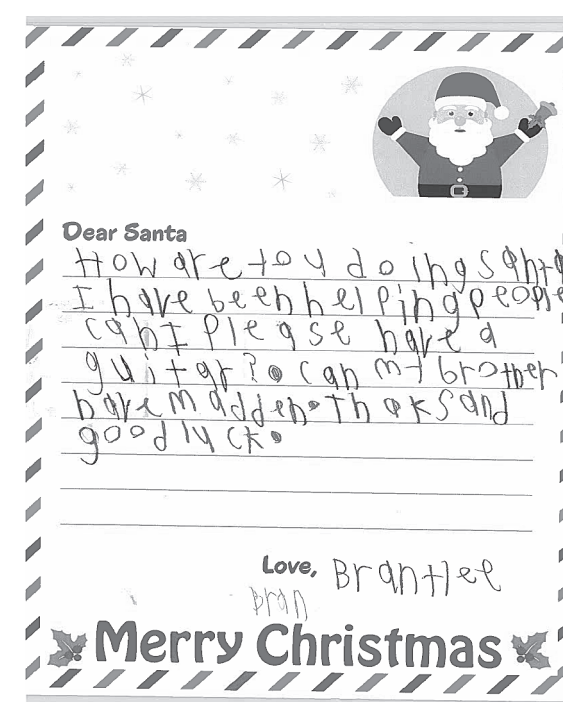 Dear Santa
How are toy doing Santa
I have been helping people
can I please have a
guitar? can my brother
have madden. thaks and
good luck.
Love, Brantlee
Bran
Merry Christmas